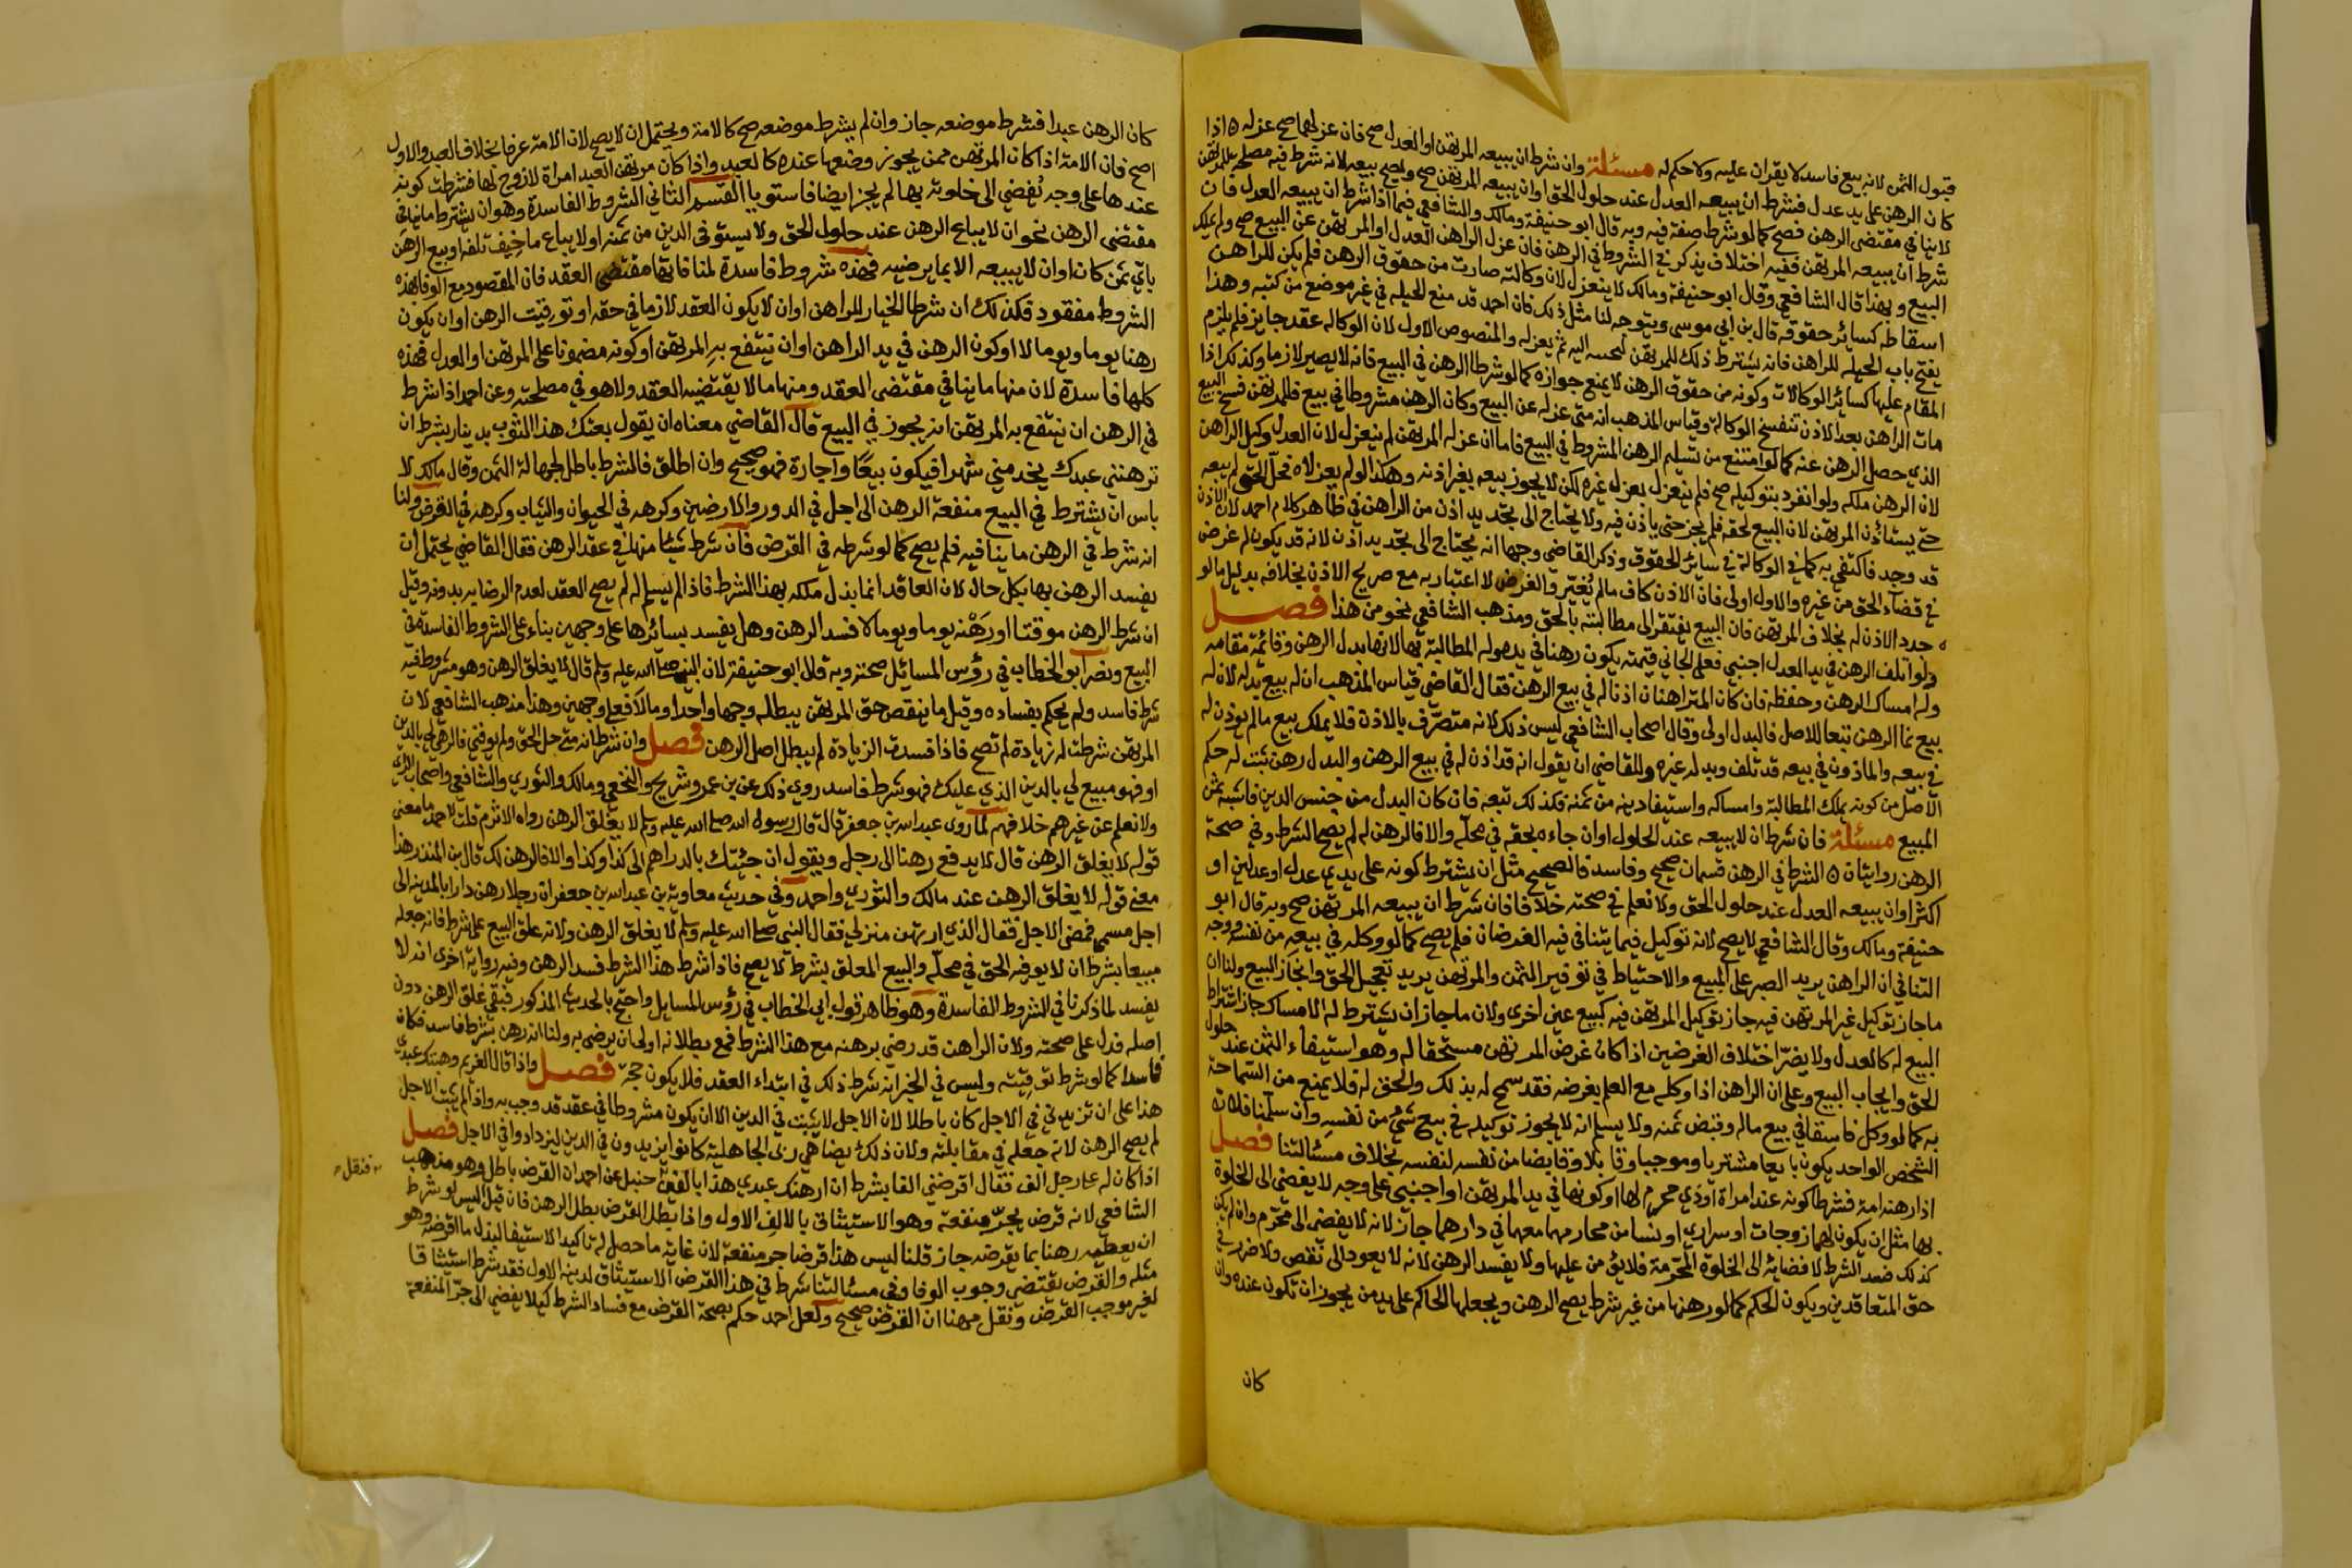 قبول الثمن لانه بيع فاسد لا يقران عليه ولا حكم له مسئلة وان شرط ان يبيعه المرتهن او العدل صح فان عزلهما صح عزله ه اذا
كان الرهن على يد عدل فشرط ان يبيعه العدل عند حلول الحق او ان يبيعه المرتهن صح ويصح بيعه لانه شرط فيه مصلحة للمرتهن
لا ينافي مقتضى الرهن فصح كما لو شرط صفة فيه وبه قال ابو حنيفة ومالك والشافعي فيما اذا شرط ان يبيعه العدل فان
شرط ان يبيعه المرتهن ففيه اختلاف يذكر في الشروط في الرهن فان عزل الراهن العدل او المرتهن عن البيع صح ولم يملك
البيع وبهذا قال الشافعي وقال ابو حنيفة ومالك لا ينعزل لان وكالته صارت من حقوق الرهن فلم يكن للراهن
اسقاطه كسائر حقوقه قال بن ابي موسى ويتوجه لنا مثل ذلك فان احمد قد منع الحيله في غير موضع من كتبه وهذا
يفتح باب الحيله للراهن فانه يشترط ذلك للمرتهن ليجيبه اليه ثم يعزله والمنصوص الاول لان الوكاله عقد جايز فلم يلزم
المقام عليها كسائر الوكالات وكونه من حقوق الرهن لا يمنع جوازه كما لو شرطا الرهن في البيع فانه لا يصير لازما وكذلك اذا
مات الراهن بعد الاذن تنفسخ الوكالة وقياس المذهب انه متى عزله عن البيع وكان الرهن مشروطا في بيع فللمرتهن فسخ البيع
الذي حصل الرهن عنه كما لو امتنع من تسليم الرهن المشروط في البيع فاما ان عزله المرتهن لم ينعزل لان العدل وكيل الراهن
لان الرهن ملكه ولو انفرد بتوكيله صح فلم ينعزل بعزل غيره لكن لا يجوز بيعه بغير اذنه وهكذا لو لم يعزلاه فحل الحق لم يبعه
حتى يستاذن المرتهن لان البيع لحقه فلم يجز حتى ياذن فيه ولا يحتاج الى تجديد اذن من الراهن في ظاهر كلام احمد لان الاذن
قد وجد فاكتفي به كما في الوكالة في سائر الحقوق وذكر القاضي وجها انه يحتاج الى تجديد اذن لانه قد يكون له غرض
في قضاء الحق من غيره والاول اولى فان الاذن كاف مالم يغير والغرض لا اعتبار به مع صريح الاذن بخلافه بدليل ما لو
جدد الاذن له بخلاف المرتهن فان البيع يفتقر الى مطالبته بالحق ومذهب الشافعي نحو من هذا فصل
ولو اتلف الرهن في يد العدل اجنبي فعلى الجاني قيمته يكون رهنا في يده وله المطالبة بها لانها بدل الرهن وقائمة مقامه
وله امساك الرهن وحفظه فان كان المتراهنان اذنا له في بيع الرهن فقال القاضي قياس المذهب ان له بيع بدله لان له
بيع نما الرهن تبعا للاصل فالبدل اولى وقال اصحاب الشافعي ليس ذلك لانه متصرف بالاذن فلا يملك بيع مالم يوذن له
في بيعه والماذون في بيعه قد تلف وبدله غيره وللقاضي ان يقول انه قد اذن له في بيع الرهن والبدل رهن ثبت له حكم
الاصل من كونه يملك المطالبة وامساكه واستيفا دينه من ثمنه فكذلك تبعه فان كان البدل من جنس الدين فاشبه ثمن
المبيع مسئلة فان شرط ان لا يبيعه عند الحلول او ان جاءه بحقه في محله والا فالرهن له لم يصح الشرط وفي صحة
الرهن روايتان ه الشرط في الرهن قسمان صحيح وفاسد فالصحيح مثل ان يشترط كونه على يدي عدل او عدلين او
اكثر او ان يبيعه العدل عند حلول الحق ولا نعلم في صحته خلافا فان شرط ان يبيعه المرتهن صح وبه قال ابو
حنيفة ومالك وقال الشافعي لا يصح لانه توكيل فيما يتنافى فيه الغرضان فلم يصح كما لو وكله في بيعه من نفسه ووجه
التنافي ان الراهن يريد الصبر على المبيع والاحتياط في توفير الثمن والمرتهن يريد تعجيل الحق وانجاز البيع ولنا ان
ماجاز توكيل غير المرتهن فيه جاز توكيل المرتهن فيه كبيع عين اخرى ولان ماجاز ان يشترط له الامساك جاز اشتراط
البيع له كالعدل ولا يضر اختلاف الغرضين اذا كان غرض المرتهن مستحقا له وهو استيفاء الثمن عند حلول
الحق وايجاب البيع وعلى ان الراهن اذا وكله مع العلم بغرضه فقد سمح له بذلك والحق له فلا يمنع من السماحة
به كما لو وكل فاسقا في بيع ماله وقبض ثمنه ولا يسلم انه لا يجوز توكيله في بيع شئ من نفسه وان سلمنا فلان
الشخص الواحد يكون بايعا مشتريا وموجبا وقابلا وقابضا من نفسه لنفسه بخلاف مسئالتنا فصل
اذا رهنه امة فشرطا كونه عند امراة او ذي محرم لها او كونها في يد المرتهن او اجنبي على وجه لا يفضي الى الخلوة
بها مثل ان يكون لهما زوجات او سراري او نسا من محارمهما معهما في دارهما جاز لانه لا يفضي الى محرم وان لم يكن
كذلك فسد الشرط لافضائه الى الخلوة المحرمة فلا يؤمن عليها ولا يفسد الرهن لانه لا يعود الى نقص ولا ضرر في
حق المتعاقدين ويكون الحكم كما لو رهنها من غير شرط يصح الرهن ويجعلها الحاكم على يد من يجوز ان تكون عنده وان
كان
كان الرهن عبدا فشرط موضعه جاز وان لم يشرط موضعه صح كالامة ويحتمل ان لا يصح لان الامة عرفا بخلاف العبد والاول
اصح فان الامة اذا كان المرتهن ممن يجوز وضعها عنده كالعبد واذا كان مرتهن العبد امراة لا زوج لها فشرطت كونه
عندها على وجه يفضي الى خلوته بها لم يجز ايضا فاستويا القسم الثاني الشروط الفاسدة وهو ان يشترط ما ينافي
مقتضى الرهن نحو ان لا يباع الرهن عند حلول الحق ولا يستوفى الدين من ثمنه او لا يباع ما خيف تلفه او بيع الرهن
باي ثمن كان او ان لا يبيعه الا بما يرضيه فهذه شروط فاسدة لمنافاتها مقتضى العقد فان المقصود مع الوفا بهذه
الشروط مفقود فكذلك ان شرطا الخيار للراهن او ان لا يكون العقد لازما في حقه او توقيت الرهن او ان يكون
رهنا يوما ويوما لا او كون الرهن في يد الراهن او ان ينتفع به المرتهن او كونه مضمونا على المرتهن او العدل فهذه
كلها فاسدة لان منها ما ينافي مقتضى العقد ومنها ما لا يقتضيه العقد ولا هو في مصلحته وعن احمد اذا شرط
في الرهن ان ينتفع به المرتهن انه يجوز في البيع قال القاضي معناه ان يقول بعتك هذا الثوب بدينار بشرط ان
ترهنني عبدك يخدمني شهرا فيكون بيعا واجارة فهو صحيح وان اطلق فالشرط باطل لجهالة الثمن وقال مالك لا
باس ان يشترط في البيع منفعة الرهن الى اجل في الدور والارضين وكرهه في الحيوان والثياب وكرهه في القرض ولنا
انه شرط في الرهن ما ينافيه فلم يصح كما لو شرطه في القرض فان شرط شيئا منها في عقد الرهن فقال القاضي يحتمل ان
يفسد الرهن بها بكل حال لان العاقد انما بذل ملكه بهذا الشرط فاذا لم يسلم له لم يصح العقد لعدم الرضا به بدونه وقيل
ان شرط الرهن موقتا او رهنه يوما ويوما لا فسد الرهن وهل يفسد بسائرها على وجهين بناء على الشروط الفاسدة في
البيع ونصر ابو الخطاب في رؤس المسائل صحته وبه قال ابو حنيفة لان النبي صلى الله عليه وسلم قال لا يغلق الرهن وهو مشروط فيه
شرط فاسد ولم يحكم بفساده وقيل ما ينقص حق المرتهن يبطله وجها واحدا ومالا فعلى وجهين وهذا مذهب الشافعي لان
المرتهن شرطت له زيادة لم تصح فاذا فسدت الزيادة لم يبطل اصل الرهن فصل وان شرط انه متى حل الحق ولم يوفني فالرهن لي بالدين
او فهو مبيع لي بالدين الذي عليك فهو شرط فاسد روي ذلك عن بن عمر وشريح والنخعي ومالك والثوري والشافعي واصحاب الراي
ولا نعلم عن غيرهم خلافهم لما روى عبد الله بن جعفر قال قال رسول الله صلى الله عليه وسلم لا يغلق الرهن رواه الاثرم قلت لاحمد ما معنى
قوله لا يغلق الرهن قال لا يدفع رهنا الى رجل ويقول ان جئتك بالدراهم الى كذا وكذا والا فالرهن لك قال بن المنذر هذا
معنى قوله لا يغلق الرهن عند مالك والثوري واحمد وفي حديث معاوية بن عبد الله بن جعفر ان رجلا رهن دارا بالمدينه الى
اجل مسمى فمضى الاجل فقال الذي ارتهن منزلي فقال النبي صلى الله عليه وسلم لا يغلق الرهن ولانه علق البيع على شرط فانه جعله
مبيعا بشرط ان لا يوفيه الحق في محله والبيع المعلق بشرط لا يصح فاذا شرط هذا الشرط فسد الرهن وفيه رواية اخرى انه لا
يفسد لما ذكرنا في الشروط الفاسدة وهو ظاهر قول ابي الخطاب في رؤس المسايل واحتج بالحديث المذكور فنفى غلق الرهن دون
اصله فدل على صحته ولان الراهن قد رضي برهنه مع هذا الشرط فمع بطلانه اولى ان يرضى به ولنا انه رهن بشرط فاسد فكان
فاسدا كما لو شرط توقيته وليس في الخبر انه شرط ذلك في ابتداء العقد فلا يكون حجة فصل واذا قال الغريم رهنتك عبدي
هذا على ان تزيدني في الاجل كان باطلا لان الاجل لا يثبت في الدين الا ان يكون مشروطا في عقد قد وجب به واذا لم يثبت الاجل
لم يصح الرهن لانه جعله في مقابلته ولان ذلك يضاهي ربى الجاهلية كانوا يزيدون في الدين ليزدادوا في الاجل فصل
اذا كان له على رجل الف فقال اقرضني الفا بشرط ان ارهنك عبدي هذا بالفين فنقل حنبل عن احمد ان القرض باطل وهو مذهب
الشافعي لانه قرض يجر منفعة وهو الاستيثاق بالالف الاول واذا بطل القرض بطل الرهن فان قيل اليس لو شرط
ان يعطيه رهنا بما يقرضه جاز قلنا ليس هذا قرضا جر منفعة لان غاية ما حصل له تاكيد الاستيفا لبدل ما اقرضه وهو
مثله والقرض يقتضي وجوب الوفا وفي مسئالتنا شرط في هذا القرض الاستيثاق لدينه الاول فقد شرط استيثاقا
لغير موجب القرض ونقل مهنا ان القرض صحيح ولعل احمد حكم بصحة القرض مع فساد الشرط كيلا يفضي الى جر المنفعة